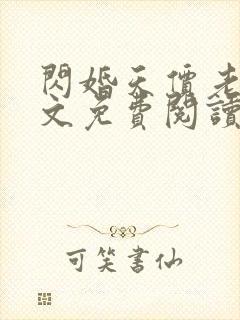 閃婚天價老
文免費閱讀
可笑書仙